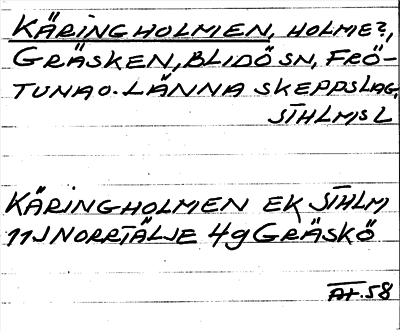 KÄRINGHOLMEN, HOLME?,
GRÄSKEN, BLIDÖ SN, FRÖ-
TUNA O. LÄNNA SKEPPSLAG,
STHLMS L
KÄRINGHOLMEN EK STHLM
11J NORRTÄLJE 4g GRÄSKÖ
AT. 58